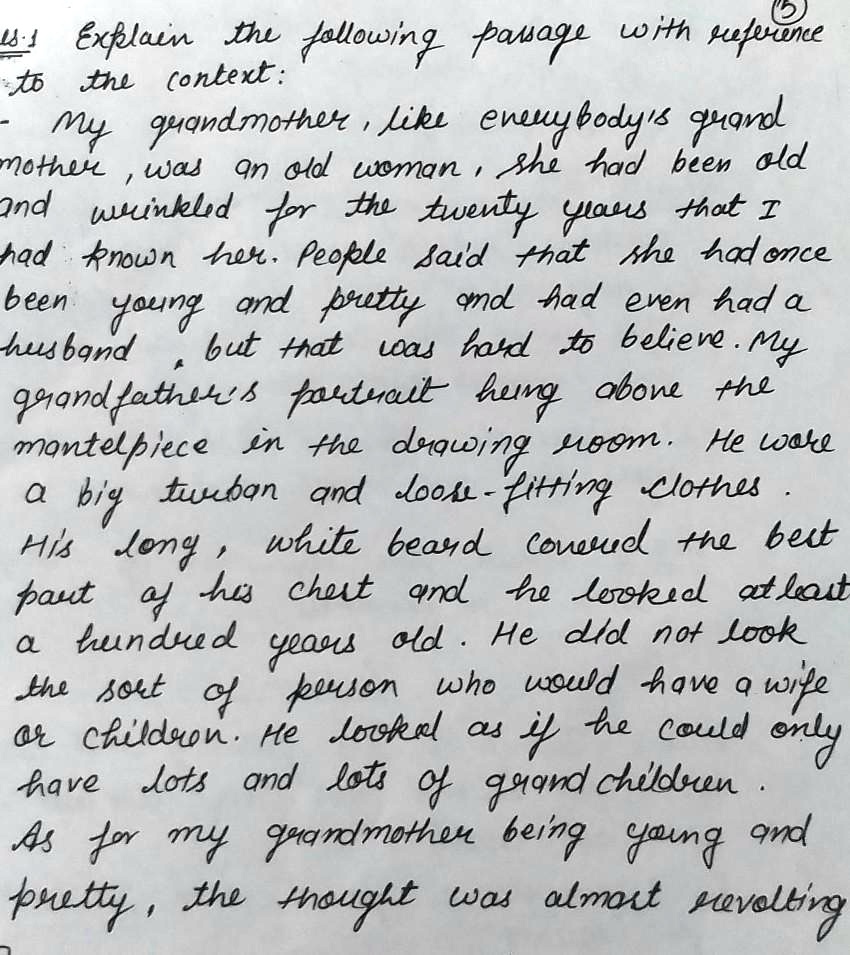 (5)
es.1 Explain the following passage with reference
to the context:
- My grandmother, like everybody's grand
mother, was an old woman, she had been old
and wrinkled for the twenty years that I
had known her. People said that she had once
been young and pretty and had even had a
husband, but that was hard to believe. My
grandfather's portrait hung above the
mantelpiece in the drawing room. He wore
a big turban and loose-fitting clothes.
His long, white beard covered the best
part of his chest and he looked at least
a hundred years old. He did not look
the sort of person who would have a wife
or children. He looked as if he could only
have lots and lots of grandchildren.
As for my grandmother being young and
pretty, the thought was almost revolting